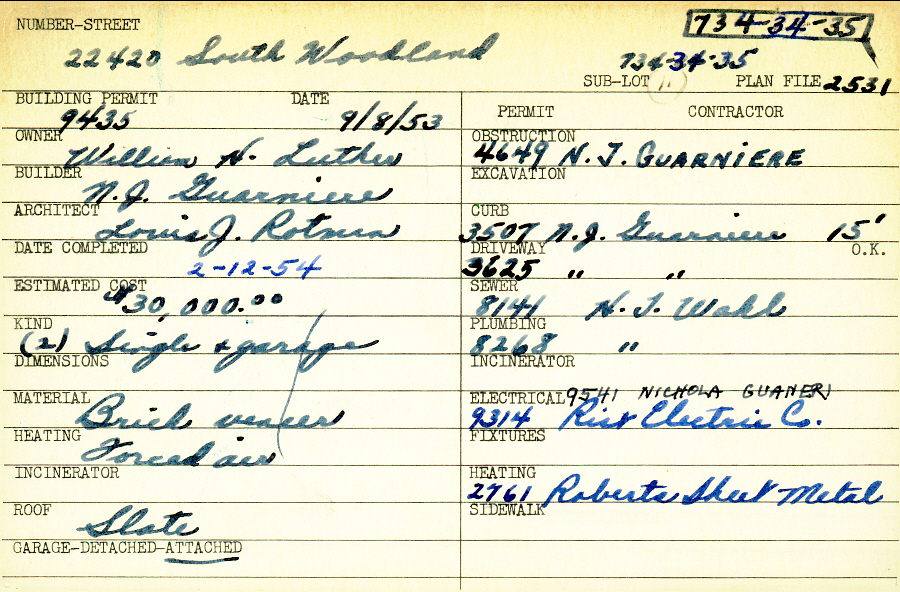 NUMBER-STREET
734-34-35
22420 South Woodland
734-34-35
SUB-LOT 11 PLAN FILE 2531
BUILDING PERMIT DATE
9435 9/8/53
PERMIT CONTRACTOR
OWNER
William H. Luther
OBSTRUCTION
4649 N. J. GUARNIERE
BUILDER
N. J. Guarniere
EXCAVATION
ARCHITECT
Louis J. Rotman
CURB
3507 N. J. Guarniere 15'
DATE COMPLETED
2-12-54
DRIVEWAY O.K.
3625 " "
ESTIMATED COST
$30,000.00
SEWER
8141 H. J. Wahl
KIND
(2) Single + garage
PLUMBING
8268 "
DIMENSIONS
INCINERATOR
MATERIAL
Brick veneer
ELECTRICAL 9541 NICHOLA GUANERI
9314 Rist Electric Co.
HEATING
Forced air
FIXTURES
INCINERATOR
HEATING
2761 Roberts Sheet Metal
ROOF
Slate
SIDEWALK
GARAGE-DETACHED-ATTACHED